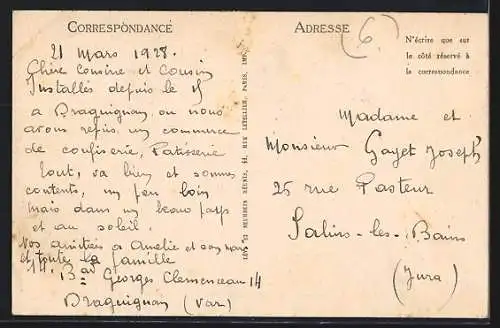 CORRESPONDANCE
ADRESSE
(6)
N'écrire que sur
le côté réservé à
la correspondance
21 Mars 1928.
Chère cousine et cousin
Installés depuis le 15
a Draguignan ou nous
avons repris un commerce
de confiserie, Patisserie
tout, va bien et sommes
contents, un peu loin
mais dans un beau pays
et au soleil.
Nos amitiés a Amélie et son mari
et toute la famille
14. Bard Georges Clemenceau 14
Draguignan (Var)
PARIS, IMP.
Madame et
Monsieur Gayet Joseph
25 rue Pasteur
Salins-les-Bains
(Jura)